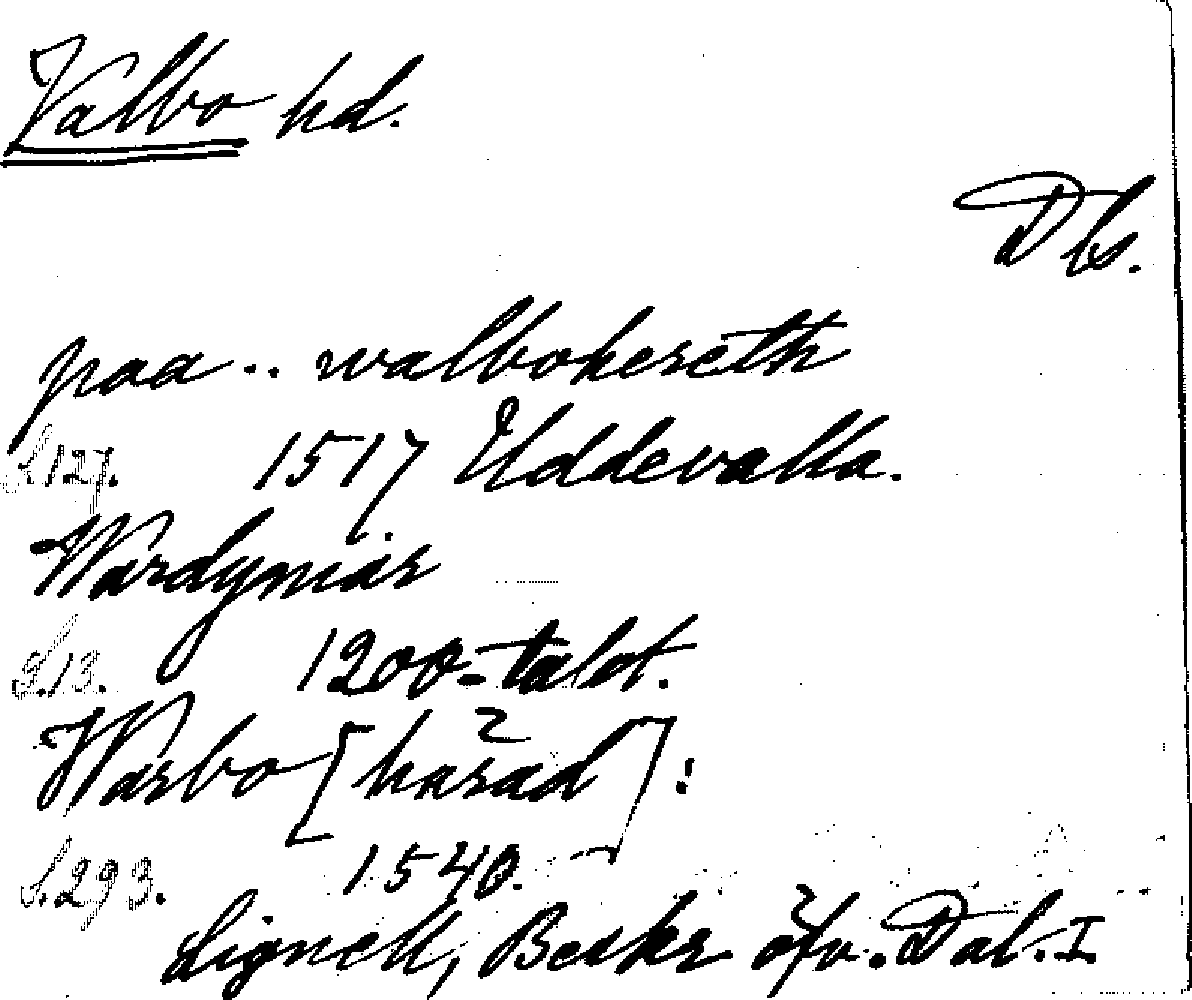 Valbo hd.
Dls.
paa .. walbohereth
S.127. 1517 Uddevalla.
Wardyniar
S.13. 1200-talet.
Warbo [härad]:
S.293. 1540.
Lignell, Beskr. öfv. Dal. I.